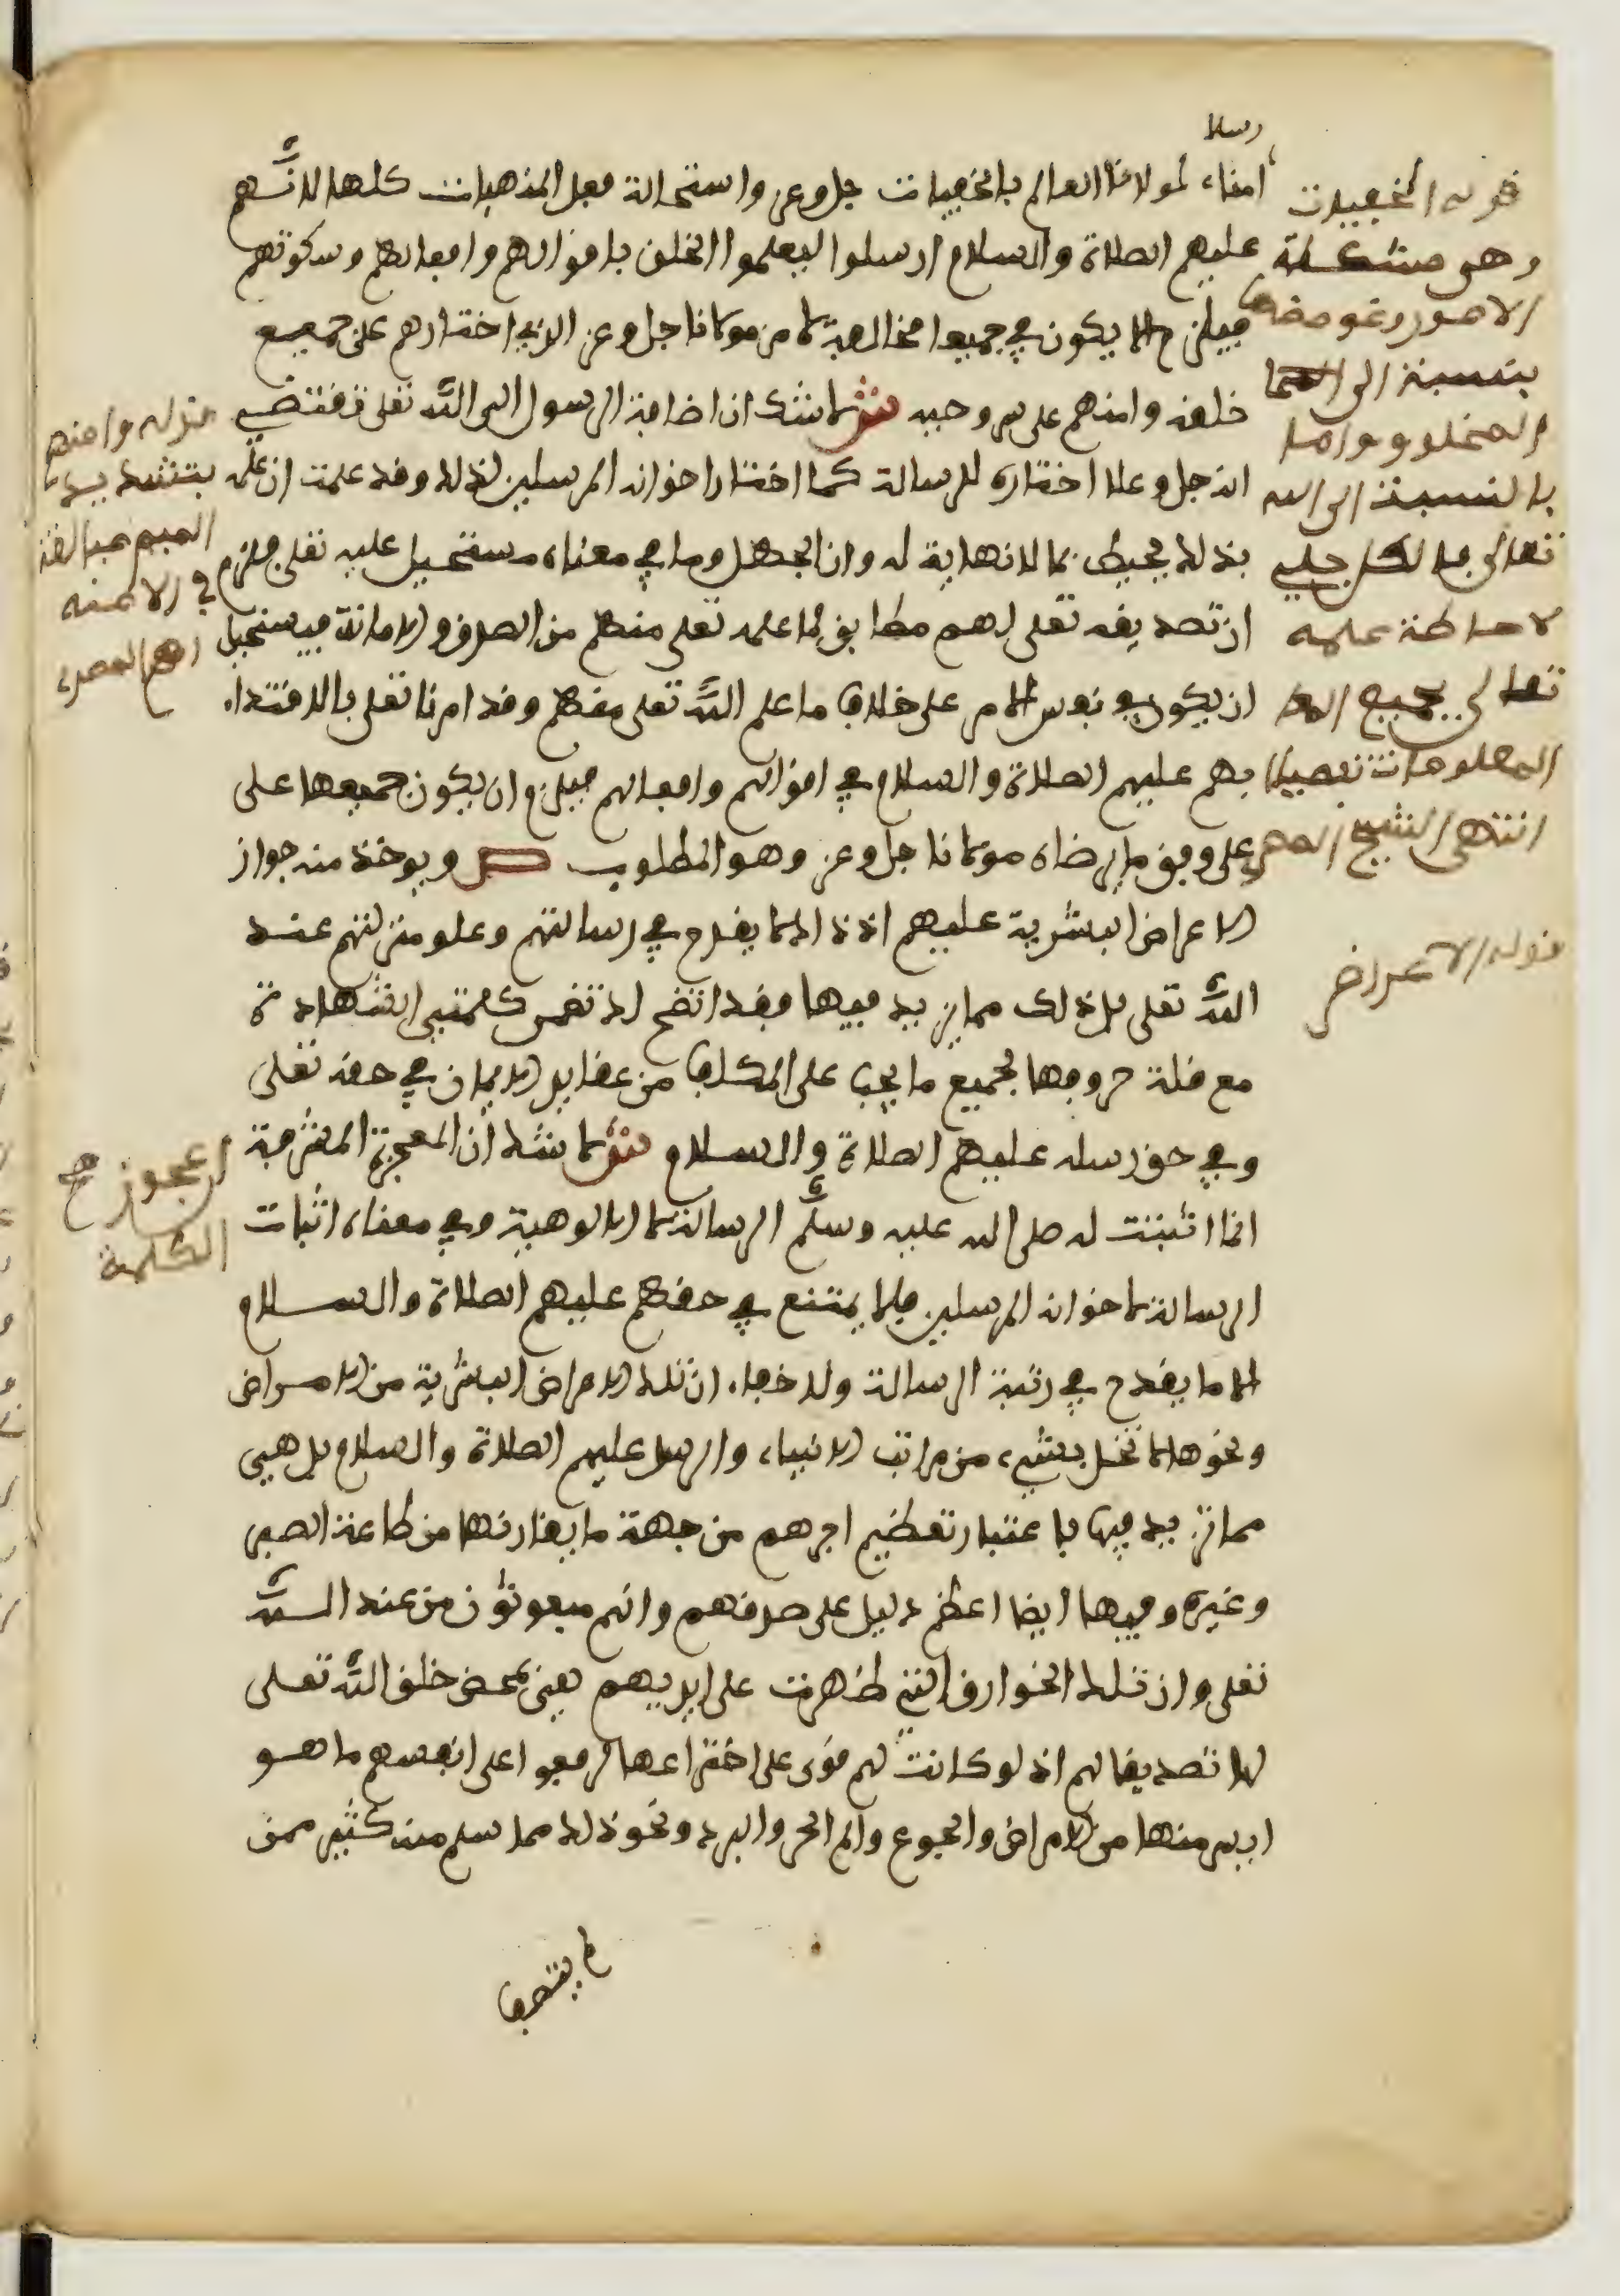 رسلا
امناء لمولانا العالم بالخفيات جل وعز واستحالة فعل المنهيات كلها لانهم
عليهم الصلاة والسلام ارسلوا ليعلموا الخلق باقوالهم وافعالهم وسكوتهم
فيلزم الا يكون في جميعها مخالفة لامر مولانا جل وعز الذي اختارهم على جميع
خلقه وامنهم على سر وحيه ش لا شك ان اضافة الرسول الى الله تعلى تقتضي
انه جل وعلا اختاره للرسالة كما اختار اخوانه المرسلين لذلك وقد علمت ان علمه
بذلك محيط بما لا نهاية له وان الجهل وما في معناه مستحيل عليه تعلى فلزم
ان تصديقه تعلى لهم مطابق لما علمه تعلى منهم من الصدق والامانة فيستحيل
ان يكون في نفس الامر على خلاف ما علم الله تعلى منهم وقد امرنا تعلى بالاقتداء
بهم عليهم الصلاة والسلام في اقوالهم وافعالهم فيلزم ان يكون جميعها على
على وفق ما يرضاه مولانا جل وعز وهو المطلوب ص ويوخذ منه جواز
الاعراض البشرية عليهم اذ ذاك لا يقدح في رسالتهم وعلو منزلتهم عند
الله تعلى بل ذلك مما يزيد فيها فقد اتضح لك تضمن كلمتي الشهادة
مع قلة حروفها لجميع ما يجب على المكلف من عقايد الايمان في حقه تعلى
وفي حق رسله عليهم الصلاة والسلام ش لا شك ان المعجزة المشرفة
انما اثبتت له صلى الله عليه وسلم الرسالة لا الالوهية وفي معناه اثبات
الرسالة لاخوانه المرسلين فلا يمتنع في حقهم عليهم الصلاة والسلام
الا ما يقدح في رتبة الرسالة ولا خفاء ان تلك الاعراض البشرية من الامراض
ونحوها لا تخل بشيء من مراتب الانبياء والرسل عليهم الصلاة والسلام بل هي
مما تزيد فيها باعتبار تعظيم اجرهم من جهة ما يقارنها من طاعة الصبر
وغيره وفيها ايضا اعظم دليل على صدقهم وانهم مبعوثون من عند الله
تعلى وان تلك الخوارق التي ظهرت على ايديهم هي بمحض خلق الله تعلى
لها تصديقا لهم اذ لو كانت لهم قوى على اختراعها لدفعوا على انفسهم ما هو
ايسر منها من الامراض والجوع والم الحر والبرد ونحو ذلك مما سلم منه كثير ممن
لم يتصف
قوله الخفيات
وهي مشكلة
الامور وغوامضها
بنسبة الى
المخلوق واما
بالنسبة الى الله
تعالى فالكل جلي
لاحاطة علمه
تعالى بجميع
المعلومات تفصيلا
انتهى الشيخ
قوله الاعراض
قوله وامنهم
بتشديد
الميم مبالغة
في الامنة
الكلمة